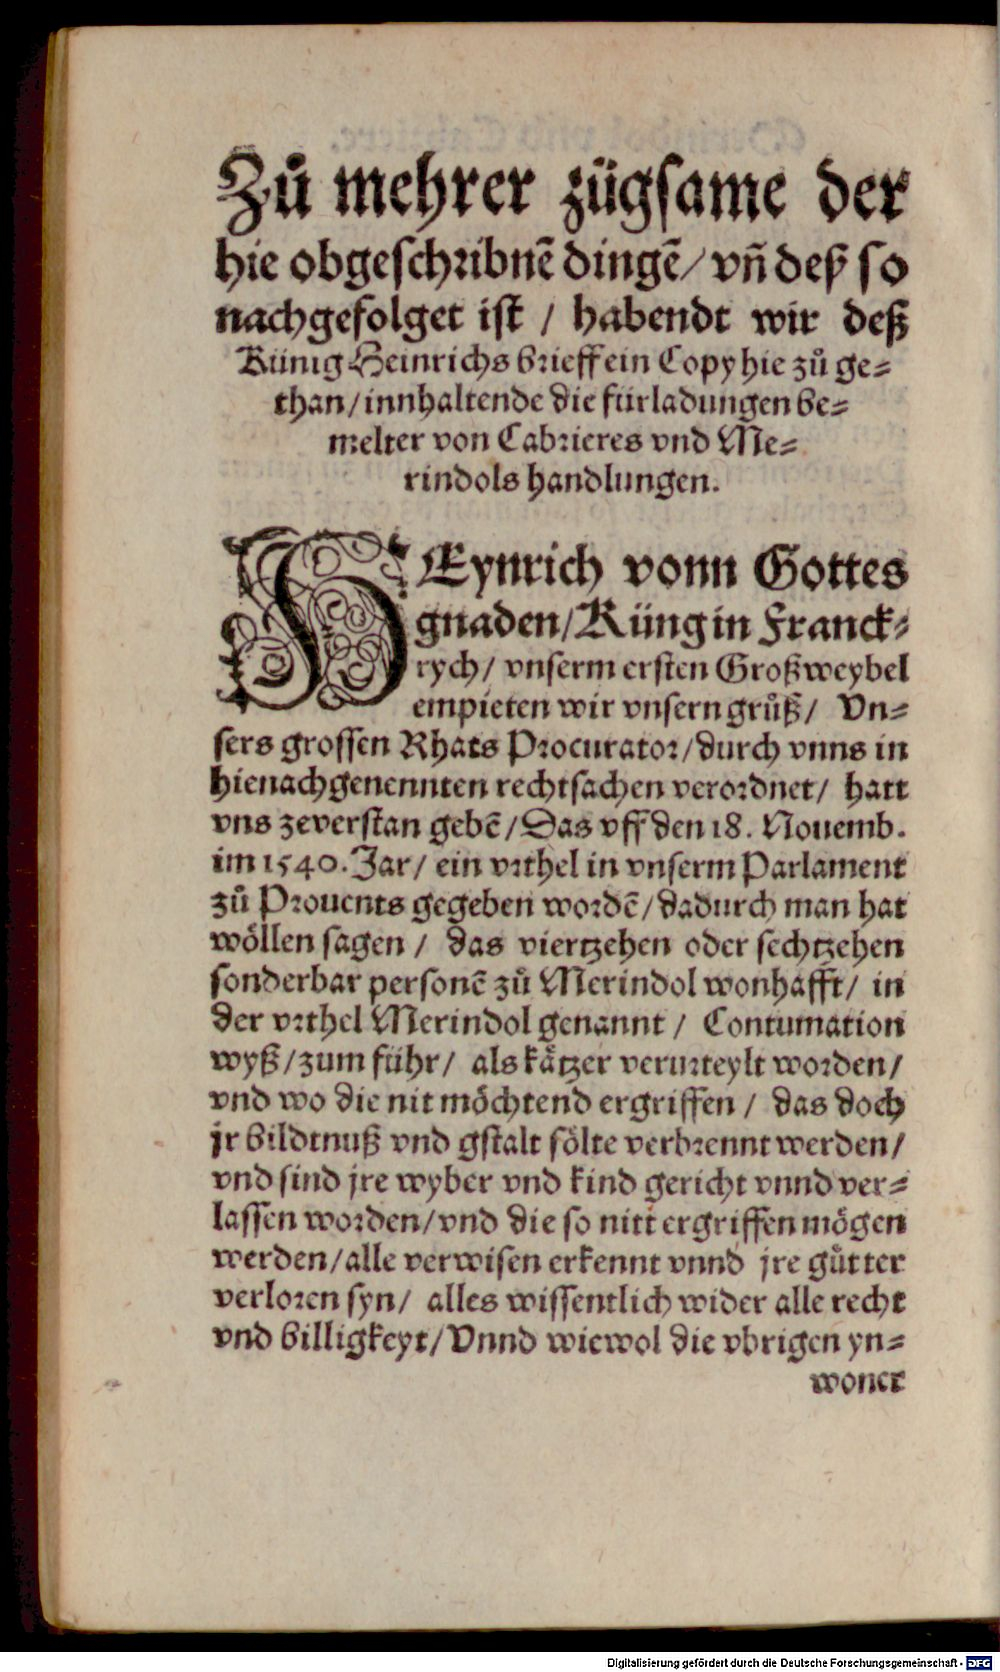 Zů mehrer zügsame der
hie obgeschribnē dingē/ vñ deß so
nachgefolget ist / habendt wir deß
Künig Heinrichs brieff ein Copy hie zů ge=
than/ innhaltende die fürladungen be=
melter von Cabrieres vnd Me=
rindols handlungen.
HEynrich vonn Gottes
gnaden/ Küng in Franck=
rych/ vnserm ersten Großweybel
empieten wir vnsern grůß/ Vn=
sers grossen Rhats Procurator/ durch vnns in
hienachgenennten rechtsachen verordnet/ hatt
vns zeverstan gebē/ Das vff den 18. Nouemb.
im 1540. Jar/ ein vrthel in vnserm Parlament
zů Prouents gegeben wordē/ dadurch man hat
wöllen sagen / das viertzehen oder sechtzehen
sonderbar personē zů Merindol wonhafft/ in
der vrthel Merindol genannt / Contumation
wyß/ zum führ/ als kätzer verurteylt worden/
vnd wo die nit möchtend ergriffen / das doch
jr bildtnuß vnd gstalt sölte verbrennt werden/
vnd sind jre wyber vnd kind gericht vnnd ver=
lassen worden/ vnd die so nitt ergriffen mögen
werden/ alle verwisen erkennt vnnd jre gůtter
verloren syn/ alles wissentlich wider alle recht
vnd billigkeyt/ Vnnd wiewol die vbrigen yn=
woner
Digitalisierung gefördert durch die Deutsche Forschungsgemeinschaft - DFG